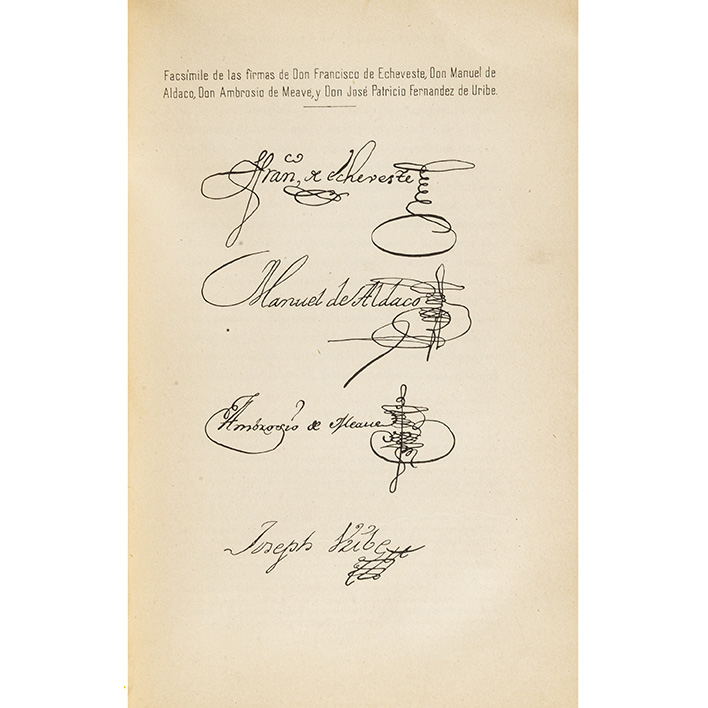 Facsímile de las firmas de Don Francisco de Echeveste, Don Manuel de
Aldaco, Don Ambrosio de Meave, y Don José Patricio Fernandez de Uribe.
Fran.co de Echeveste
Manuel de Aldaco
Ambrosio de Meave
Joseph Uribe